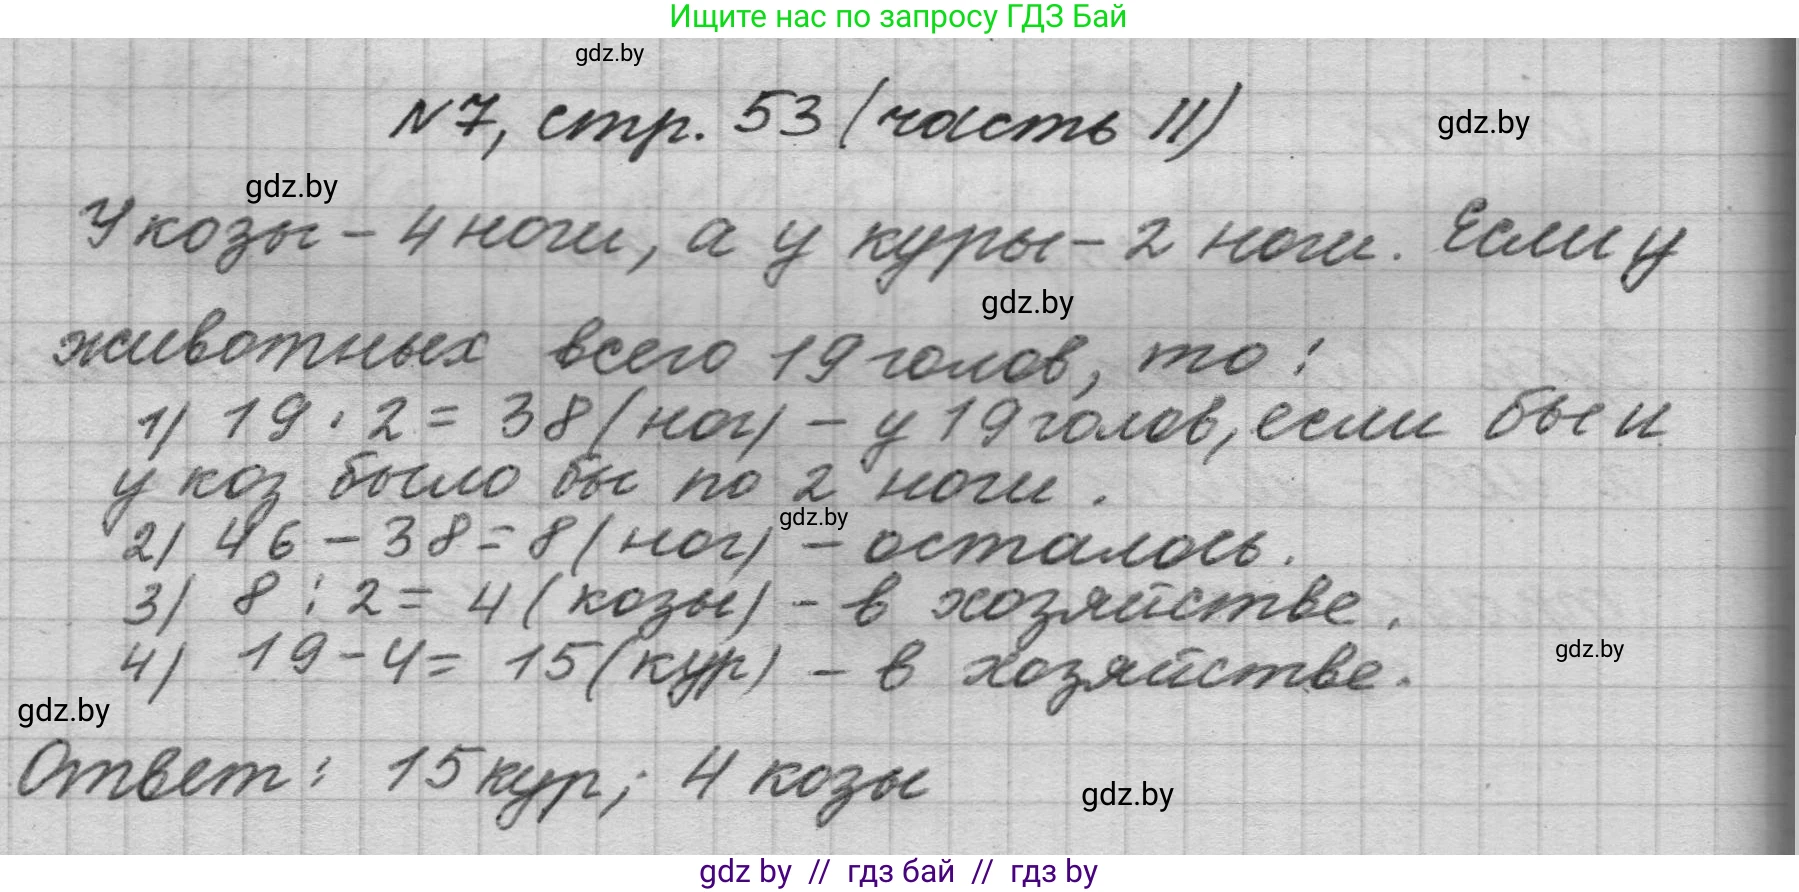 Ищите нас по запросу ГДЗ Бай
gdz.by
№7, стр. 53 (часть II)
gdz.by
gdz.by
У козы – 4 ноги, а у куры – 2 ноги. Если у
gdz.by
животных всего 19 голов, то:
1) 19 · 2 = 38 (ног) – у 19 голов, если бы и
у коз было бы по 2 ноги.
gdz.by
2) 46 – 38 = 8 (ног) – осталось.
3) 8 : 2 = 4 (козы) – в хозяйстве.
4) 19 – 4 = 15 (кур) – в хозяйстве.
gdz.by
gdz.by
Ответ: 15 кур; 4 козы
gdz.by
gdz by // гдз бай // гдз by